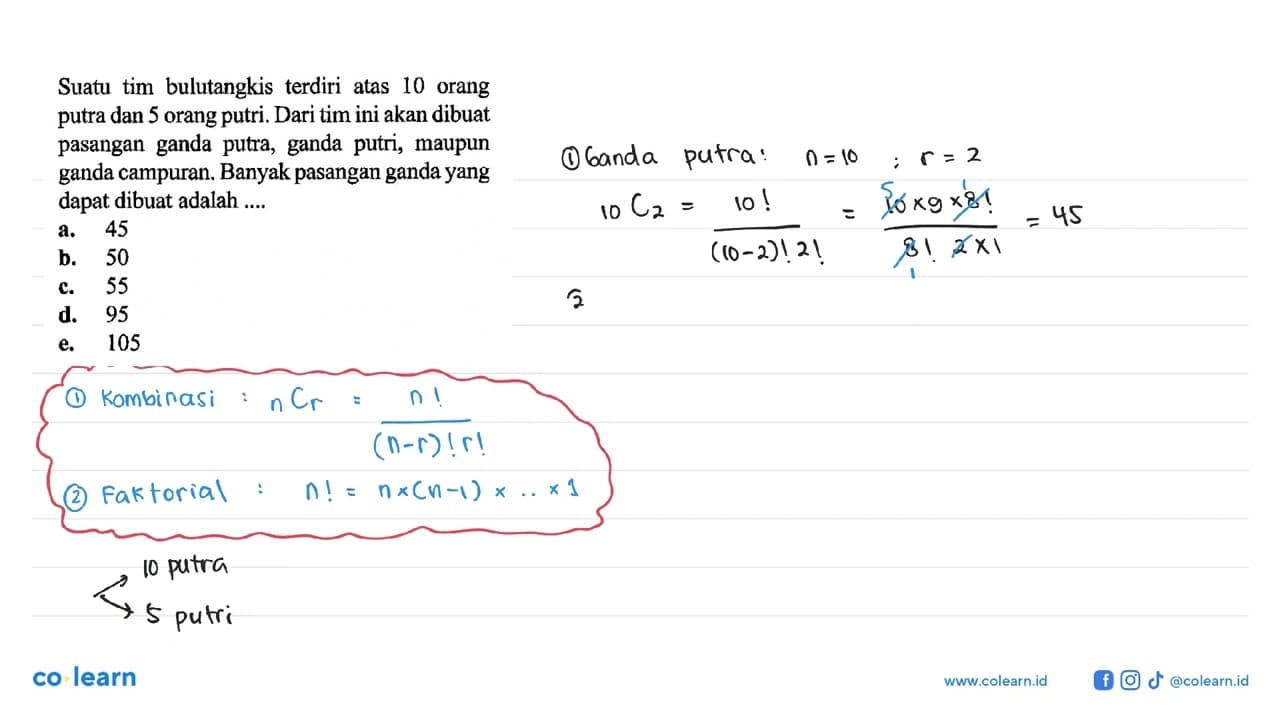 Suatu tim bulutangkis terdiri atas 10 orang
putra dan 5 orang putri. Dari tim ini akan dibuat
pasangan ganda putra, ganda putri, maupun
ganda campuran. Banyak pasangan ganda yang
dapat dibuat adalah ....
a. 45
b. 50
c. 55
d. 95
e. 105
① Kombinasi : nCr = n! / (n-r)! r!
② Faktorial : n! = n×(n-1) × .. × 1
10 putra
5 putri
① Ganda putra: n = 10 ; r = 2
10 C2 = 10! / (10-2)! 2! = 10 × 9 × 8! / 8! 2×1 = 45
5 1
1
2
co learn
www.colearn.id
@colearn.id